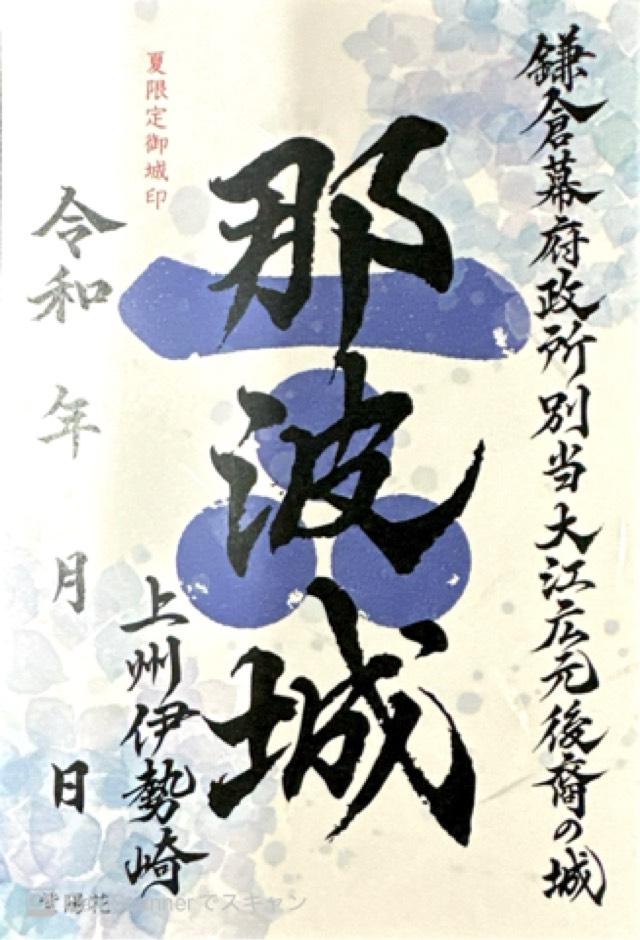 鎌倉幕府政所別当大江広元後裔の城
那波城
夏限定御城印
上州伊勢崎
令和 年 月 日
紫陽花
でスキャン